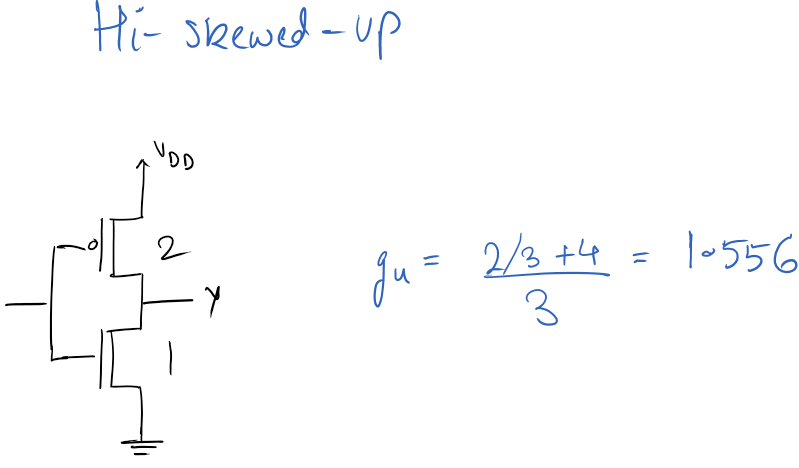 Hi- skewed-up
VDD
2
Y
1
gu = 2/3 +4 / 3 = 1.556